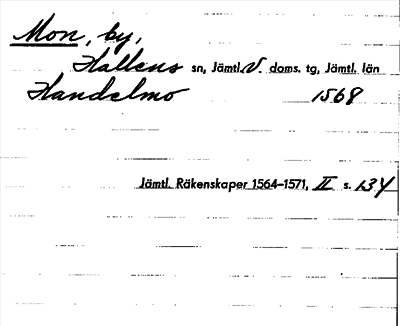 Mon, by,
Hallens sn, Jämtl. V. doms. tg, Jämtl. län
Handelmo 1568
Jämtl. Räkenskaper 1564–1571, II s. 134